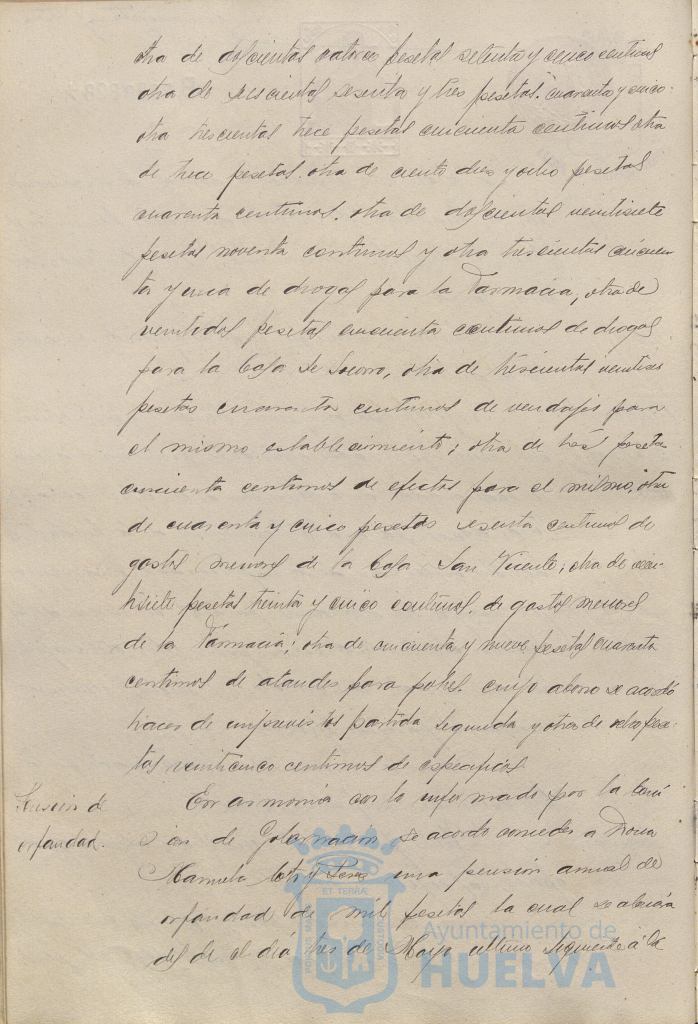 otra de doscientas catorce pesetas setenta y cinco centimos
otra de seiscientas sesenta y tres pesetas cuarenta y cinco.
otra trescientas trece pesetas cincuenta centimos otra
de trece pesetas. otra de ciento diez y ocho pesetas
cuarenta centimos. otra de doscientas veintisiete
pesetas noventa centimos y otra trescientas cincuen
ta y una de drogas para la Farmacia, otra de
veintidos pesetas cincuenta centimos de drogas
para la Casa de Socorro, otra de trescientas
pesetas cuarenta centimos de vendajes para
el mismo establecimiento; otra de tres pesetas
cincuenta centimos de efectos para el mismo, otra
de cuarenta y cinco pesetas sesenta centimos de
gastos menores de la Casa San Vicente; otra de vein
tisiete pesetas treinta y cinco centimos, de gastos menores
de la Farmacia; otra de cincuenta y nueve pesetas cuarenta
centimos de ataudes para pobres. cuyo abono se acordó
hacer de imprevistos partida segunda y otra de ocho pese-
tas veinticinco centimos de especificos.
Pensión de
orfandad.
En armonia con lo informado por la Comi
sion de Gobernación se acordo conceder a Doña
Manuela y una pensión anual de
orfandad de mil pesetas la cual se abonará
desde el día tres de Mayo ultimo siguiente á la
Ayuntamiento de
HUELVA